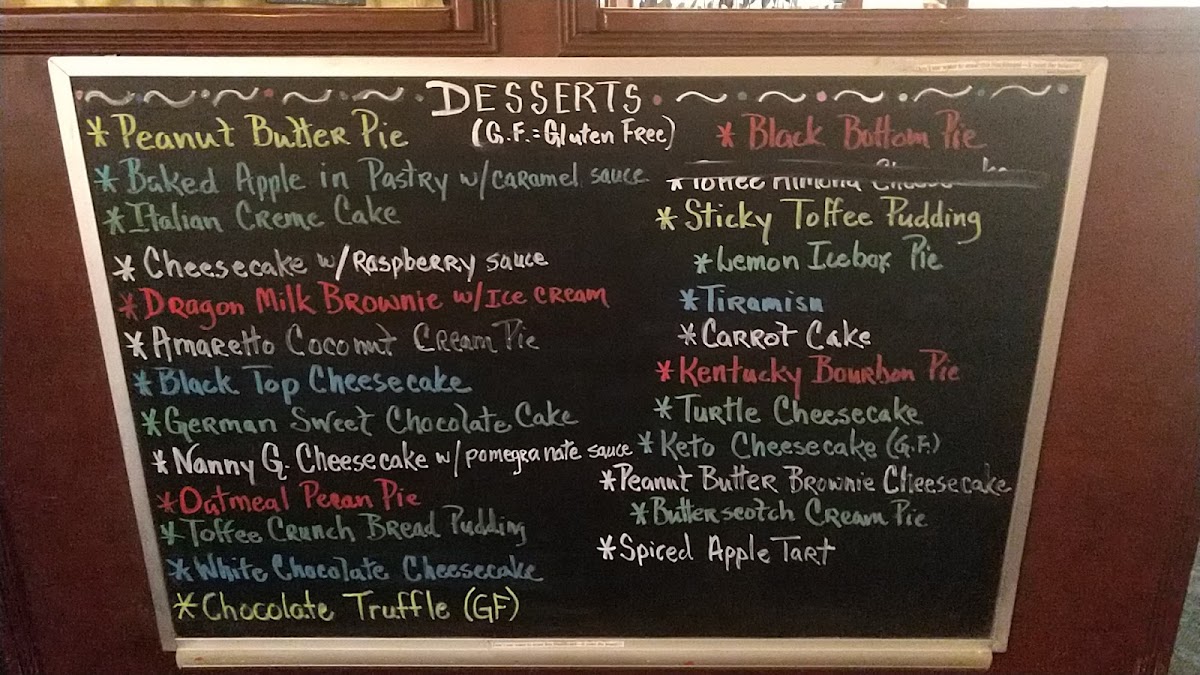 DESSERTS
(G.F. = Gluten Free)
* Peanut Butter Pie
* Baked Apple in Pastry w/caramel sauce
* Italian Creme Cake
* Cheesecake w/Raspberry sauce
* Dragon Milk Brownie w/Ice cream
* Amaretto Coconut Cream Pie
* Black Top Cheesecake
* German Sweet Chocolate Cake
* Nanny G. Cheesecake w/pomegranate sauce
* Oatmeal Pecan Pie
* Toffee Crunch Bread Pudding
* White Chocolate Cheesecake
* Chocolate Truffle (GF)
* Black Bottom Pie
* Toffee Almond
* Sticky Toffee Pudding
* Lemon Icebox Pie
* Tiramisu
* Carrot Cake
* Kentucky Bourbon Pie
* Turtle Cheesecake
* Keto Cheesecake (G.F.)
* Peanut Butter Brownie Cheesecake
* Butterscotch Cream Pie
* Spiced Apple Tart